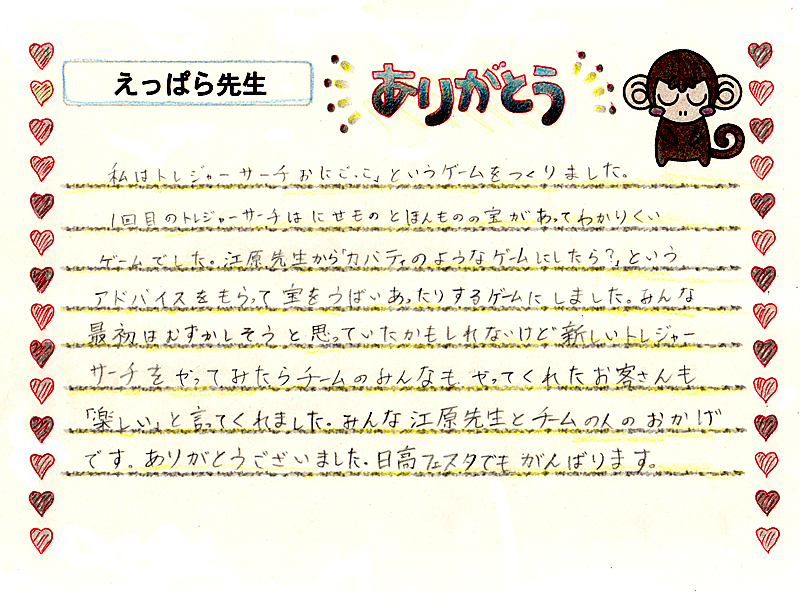 えっぱら先生
ありがとう
私はトレジャーサーチおにごっこ」というゲームをつくりました。
1回目のトレジャーサーチはにせものとほんものの宝があってわかりくい
ゲームでした。江原先生から「カバディのようなゲームにしたら?」という
アドバイスをもらって宝をうばいあったりするゲームにしました。みんな
最初はむずかしそうと思っていたかもしれないけど新しいトレジャー
サーチをやってみたらチームのみんなもやってくれたお客さんも
「楽しい」と言ってくれました。みんな江原先生とチームの人のおかげ
です。ありがとうございました。日高フェスタでもがんばります。